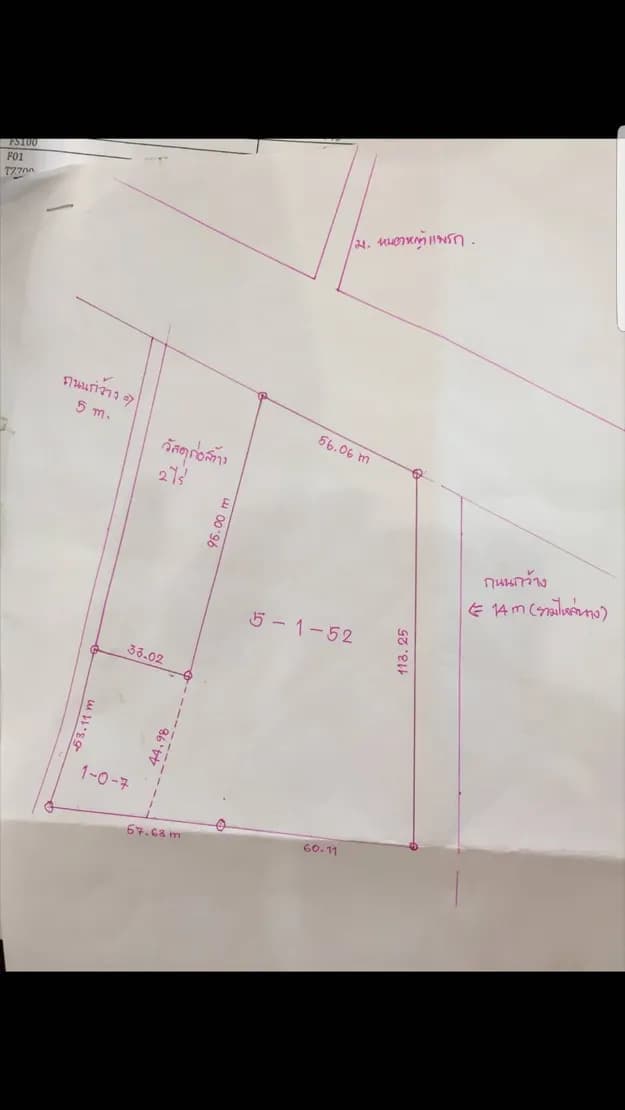 FS100
F01
TZ700
ม. หนองหญ้าแพรก.
ถนนกว้าง ⇒
5 m.
วัสดุก่อสร้าง
2 ไร่
56.06 m
95.00 m
ถนนกว้าง
⇐ 14 m (รวมไหล่ทาง)
5 - 1 - 52
113.25
33.02
53.11 m
44.98
1-0-7
57.63 m
60.11